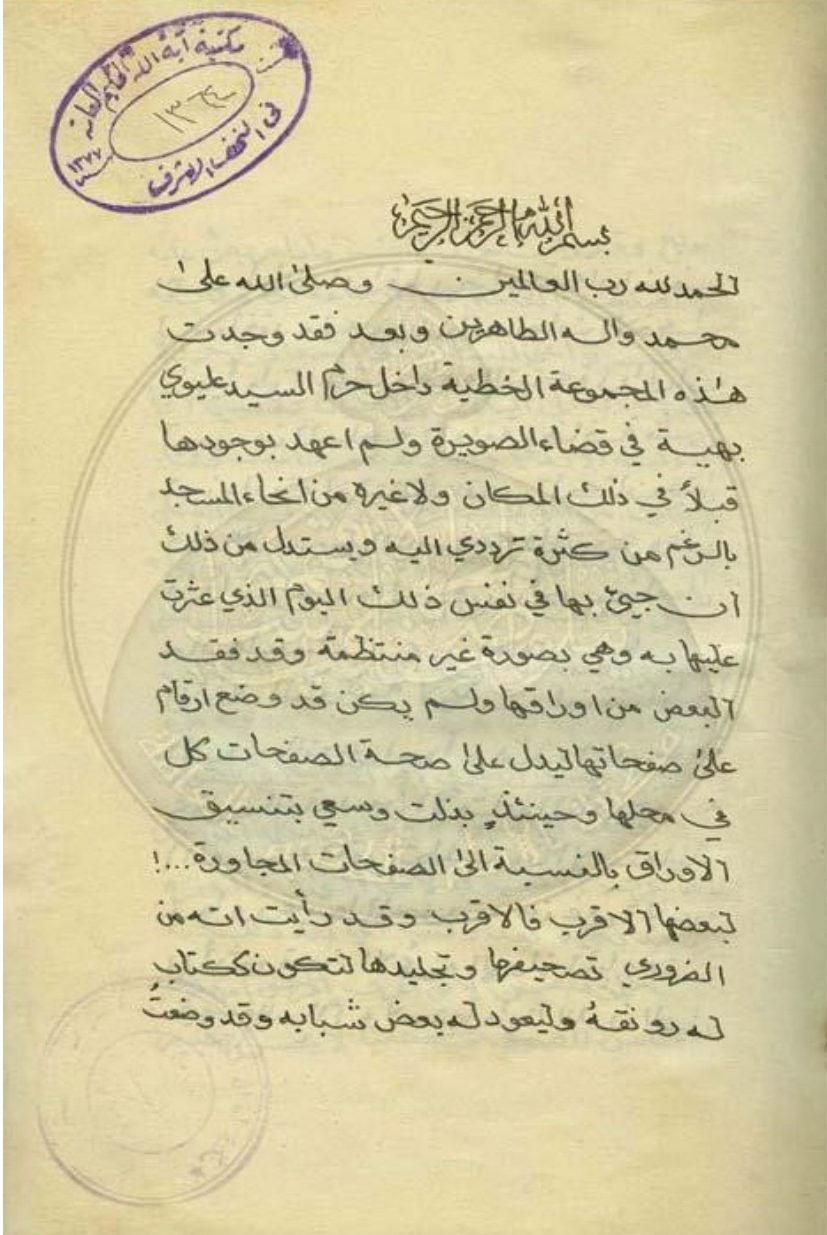 مكتبة آية الله الحكيم العامة
١٣٦٤
في النجف الاشرف
١٣٧٧
بسم الله الرحمن الرحيم
الحمد لله رب العالمين وصلى الله على
محمد واله الطاهرين وبعد فقد وجدت
هذه المجموعة الخطية داخل حرم السيد عليوي
بهية في قضاء الصويرة ولم اعهد بوجودها
قبلاً في ذلك المكان ولاغيره من انحاء المسجد
بالرغم من كثرة ترددي اليه ويستدل من ذلك
ان جيئ بها في نفس ذلك اليوم الذي عثرت
عليها به وهي بصورة غير منتظمة وقد فقد
البعض من اوراقها ولم يكن قد وضع ارقام
على صفحاتها ليدل على صحة الصفحات كل
في محلها وحينئذٍ بذلت وسعي بتنسيق
الاوراق بالنسبة الى الصفحات المجاورة...!
لبعضها الاقرب فالاقرب وقد رأيت انه من
الضروري تصحيفها وتجليدها لتكون ككتابٍ
له رونقهُ وليعود له بعض شبابه وقد وضعتُ